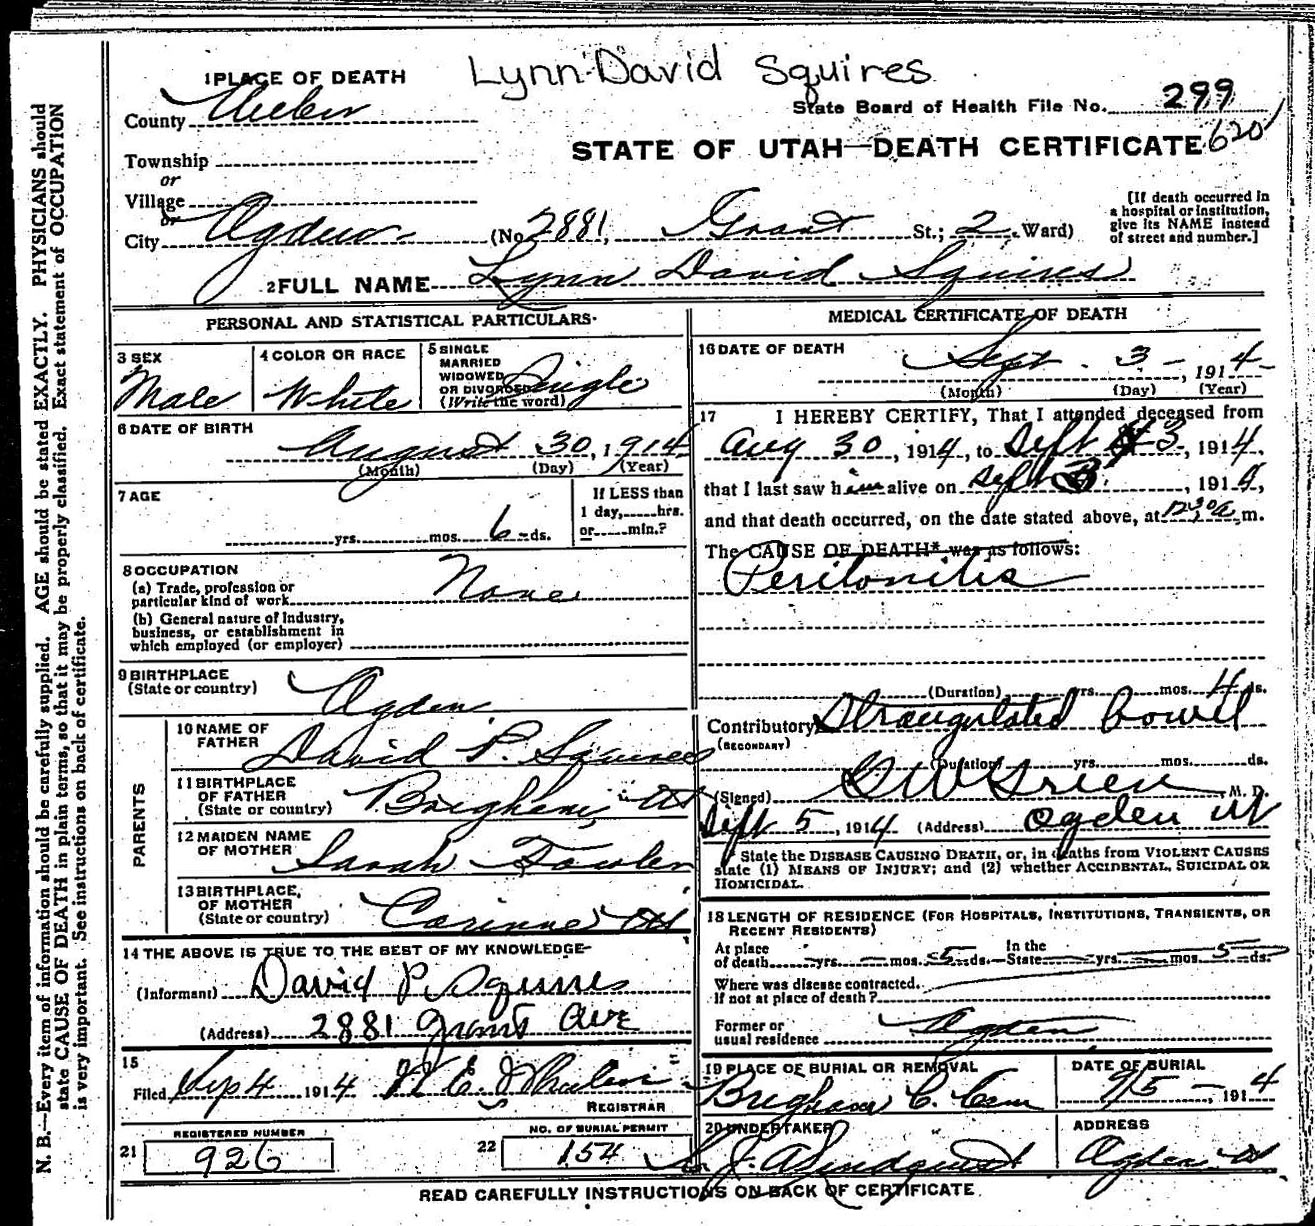 Lynn David Squires
1 PLACE OF DEATH
County Weber
State Board of Health File No. 299
620
STATE OF UTAH—DEATH CERTIFICATE
Township
or
Village
or
City Ogden (No 2881, Grant St.; 2 Ward)
[If death occurred in a hospital or institution, give its NAME instead of street and number.]
2 FULL NAME Lynn David Squires
PERSONAL AND STATISTICAL PARTICULARS
3 SEX Male
4 COLOR OR RACE White
5 SINGLE MARRIED WIDOWED OR DIVORCED (Write the word) Single
6 DATE OF BIRTH August 30, 1914
(Month) (Day) (Year)
7 AGE
yrs. mos. 6 ds.
If LESS than 1 day, hrs. or min.?
8 OCCUPATION
(a) Trade, profession or particular kind of work None
(b) General nature of Industry, business, or establishment in which employed (or employer)
9 BIRTHPLACE (State or country) Ogden
PARENTS
10 NAME OF FATHER David P. Squires
11 BIRTHPLACE OF FATHER (State or country) Brigham, Ut
12 MAIDEN NAME OF MOTHER Sarah Fowler
13 BIRTHPLACE, OF MOTHER (State or country) Corinne Ut
14 THE ABOVE IS TRUE TO THE BEST OF MY KNOWLEDGE
(Informant) David P. Squires
(Address) 2881 Grant Ave
15
Filed Sep 4 1914
REGISTRAR
REGISTERED NUMBER
21 926
NO. OF BURIAL PERMIT
22 154
MEDICAL CERTIFICATE OF DEATH
16 DATE OF DEATH Sept. 3, 1914
(Month) (Day) (Year)
17 I HEREBY CERTIFY, That I attended deceased from
Aug 30, 1914, to Sept 3, 1914,
that I last saw him alive on Sept 3, 1914,
and that death occurred, on the date stated above, at 12 30 a m.
The CAUSE OF DEATH* was as follows:
Peritonitis
(Duration) yrs. mos. 4 ds.
Contributory Strangulated bowel
(SECONDARY)
(Duration) yrs. mos. ds.
(Signed) G W Green M. D.
Sept 5, 1914 (Address) Ogden Ut
State the DISEASE CAUSING DEATH, or, in deaths from VIOLENT CAUSES
state (1) MEANS OF INJURY; and (2) whether ACCIDENTAL, SUICIDAL OR
HOMICIDAL.
18 LENGTH OF RESIDENCE (FOR HOSPITALS, INSTITUTIONS, TRANSIENTS, OR RECENT RESIDENTS)
At place of death yrs. mos. 5 ds. In the State yrs. mos. 5 ds.
Where was disease contracted. If not at place of death?
Former or usual residence Ogden
19 PLACE OF BURIAL OR REMOVAL Brigham C. Cem
DATE OF BURIAL 9/5, 1914
20 UNDERTAKER Lindquist
ADDRESS Ogden Ut
READ CAREFULLY INSTRUCTIONS ON BACK OF CERTIFICATE
N. B.—Every item of information should be carefully supplied. AGE should be stated EXACTLY. PHYSICIANS should
state CAUSE OF DEATH in plain terms, so that it may be properly classified. Exact statement of OCCUPATION
is very important. See instructions on back of certificate.